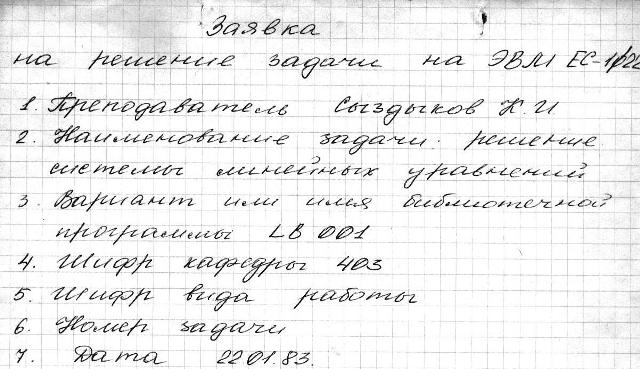 Заявка
на решение задачи на ЭВМ ЕС-1022
1. Преподаватель Сыздыков К. И
2. Наименование задачи. решение
системы линейных уравнений
3. Вариант или имя библиотечной
программы LB 001
4. Шифр кафедры 403
5. Шифр вида работы
6. Номер задачи
7. Дата 22 01. 83.